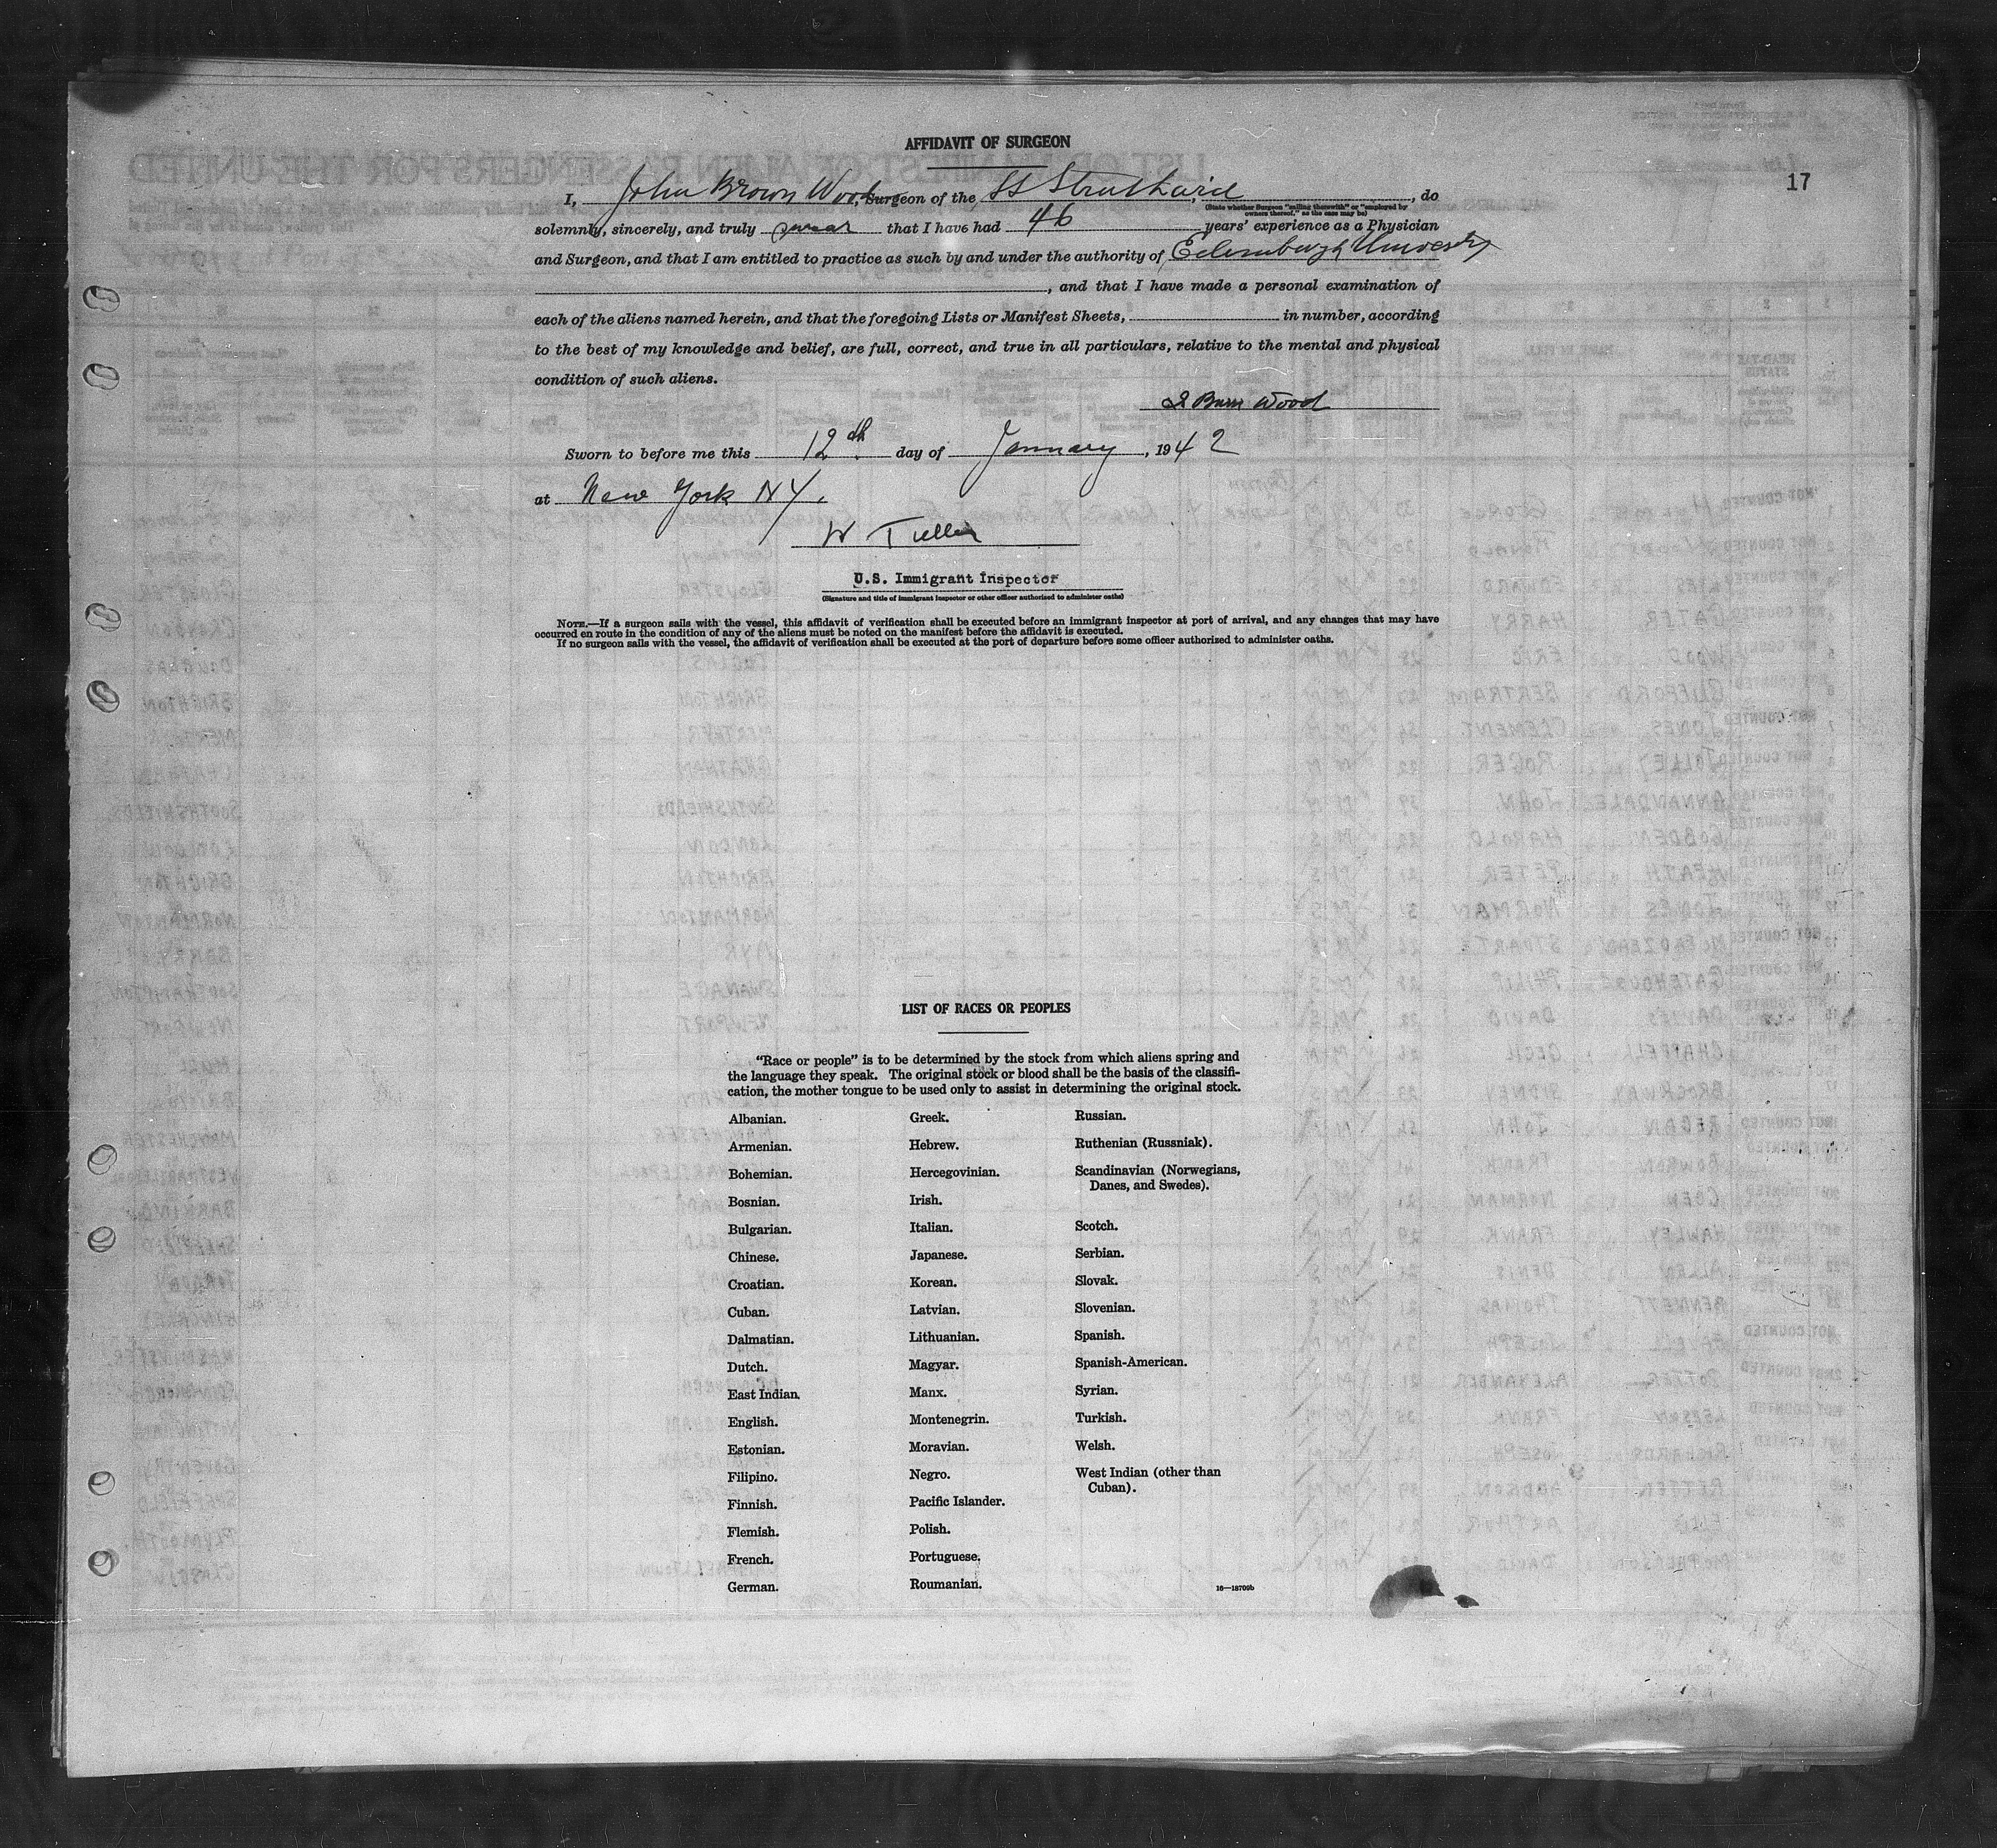 AFFIDAVIT OF SURGEON
17
I, John Brown Wood, Surgeon of the SS Strathaird, do
(State whether Surgeon "sailing therewith" or "employed by
owners thereof," as the case may be)
solemnly, sincerely, and truly swear that I have had 46 years' experience as a Physician
and Surgeon, and that I am entitled to practice as such by and under the authority of Edinburgh University
, and that I have made a personal examination of
each of the aliens named herein, and that the foregoing Lists or Manifest Sheets, in number, according
to the best of my knowledge and belief, are full, correct, and true in all particulars, relative to the mental and physical
condition of such aliens.
J Brown Wood
Sworn to before me this 12th. day of January, 1942
at New York NY.
W Tuller
U.S. Immigrant Inspector
(Signature and title of immigrant inspector or other officer authorized to administer oaths)
NOTE.—If a surgeon sails with the vessel, this affidavit of verification shall be executed before an immigrant inspector at port of arrival, and any changes that may have
occurred en route in the condition of any of the aliens must be noted on the manifest before the affidavit is executed.
If no surgeon sails with the vessel, the affidavit of verification shall be executed at the port of departure before some officer authorized to administer oaths.
LIST OF RACES OR PEOPLES
"Race or people" is to be determined by the stock from which aliens spring and
the language they speak. The original stock or blood shall be the basis of the classifi-
cation, the mother tongue to be used only to assist in determining the original stock.
Albanian.
Armenian.
Bohemian.
Bosnian.
Bulgarian.
Chinese.
Croatian.
Cuban.
Dalmatian.
Dutch.
East Indian.
English.
Estonian.
Filipino.
Finnish.
Flemish.
French.
German.
Greek.
Hebrew.
Hercegovinian.
Irish.
Italian.
Japanese.
Korean.
Latvian.
Lithuanian.
Magyar.
Manx.
Montenegrin.
Moravian.
Negro.
Pacific Islander.
Polish.
Portuguese.
Roumanian.
Russian.
Ruthenian (Russniak).
Scandinavian (Norwegians,
Danes, and Swedes).
Scotch.
Serbian.
Slovak.
Slovenian.
Spanish.
Spanish-American.
Syrian.
Turkish.
Welsh.
West Indian (other than
Cuban).
16—18700b